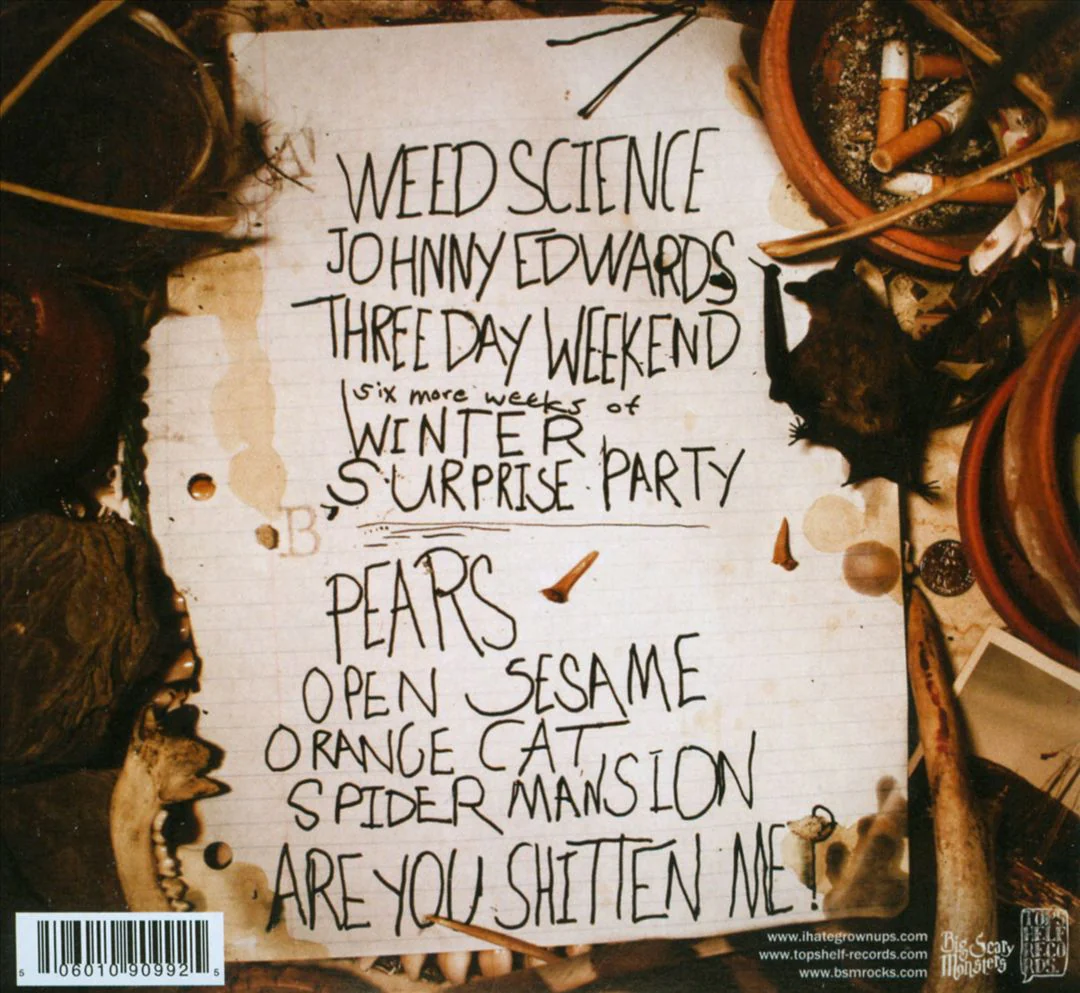 A
WEED SCIENCE
JOHNNY EDWARDS
THREE DAY WEEKEND
six more weeks of
WINTER
SURPRISE PARTY
B
PEARS
OPEN SESAME
ORANGE CAT
SPIDER MANSION
ARE YOU SHITTEN ME?
www.ihategrownups.com
www.topshelf-records.com
www.bsmrocks.com
Big Scary
Monsters
TOP
SHELF
RECO
RDS.
5 06010 90992 5